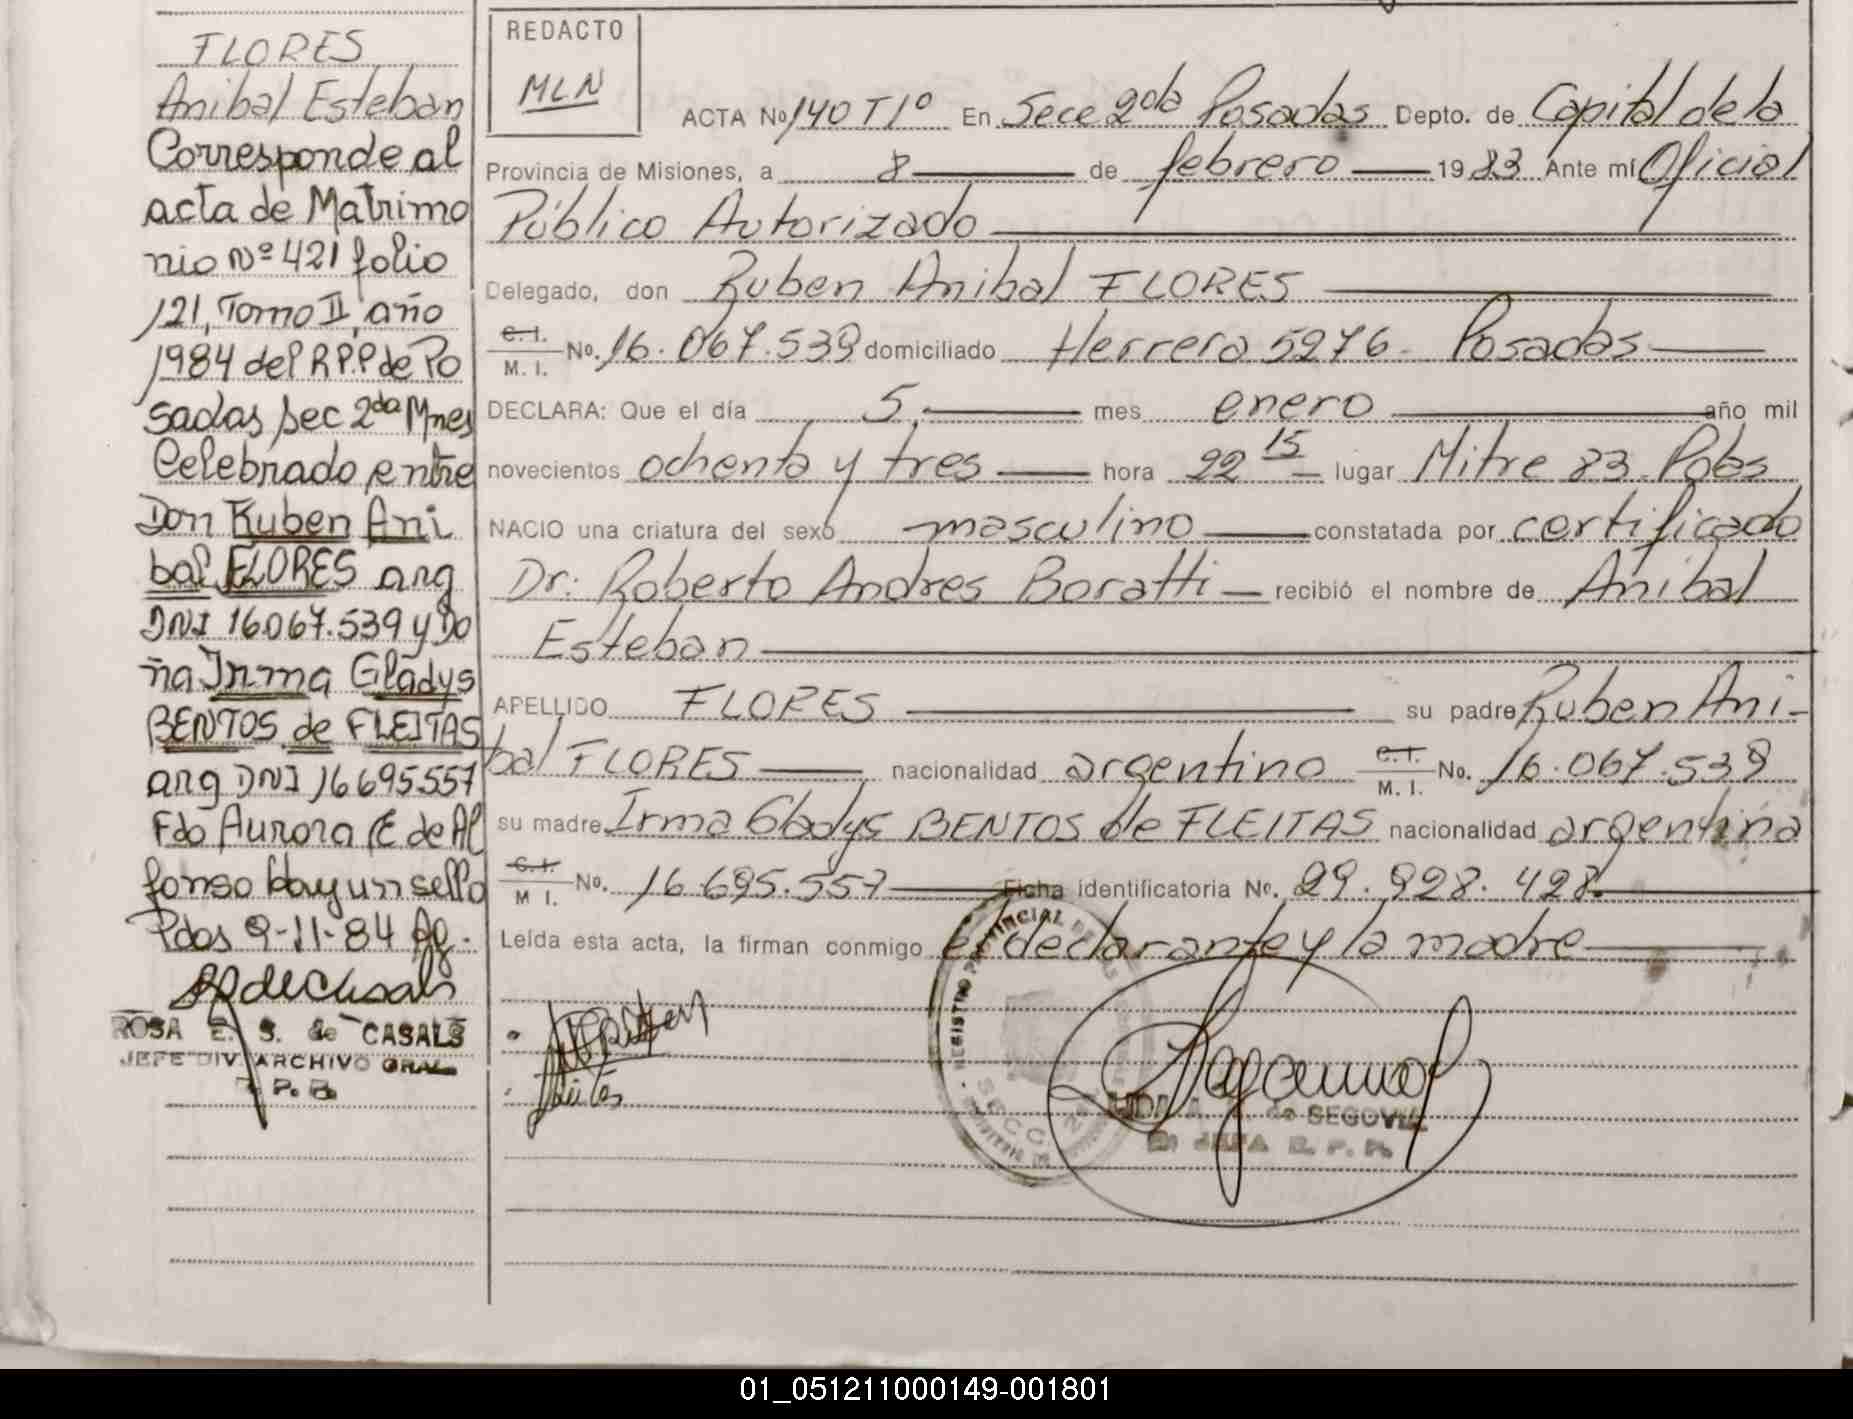 FLORES
Anibal Esteban
Corresponde al
acta de Matrimo
nio Nº 421 folio
121, Tomo II, año
1984 del R.P.P de Po
sadas sec 2da Mnes
Celebrado entre
Don Ruben Ani
bal FLORES arg
DNI 16.067.539 y Do
ña Irma Gladys
BENTOS de FLEITAS
arg DNI 16695557
Fdo Aurora E de Al
fonso hay un sello
Pdas 9-11-84
ROSA E. S. de CASALS
JEFE DIV. ARCHIVO GRAL
R. P. P.
REDACTO
MLN
ACTA Nº 140 T1º En Secc 2da Posadas Depto. de Capital de la
Provincia de Misiones, a 8 de febrero 1983 Ante mí Oficial
Público Autorizado
Delegado, don Ruben Anibal FLORES
C.I. M.I. No. 16.067.539 domiciliado Herrera 5276 Posadas
DECLARA: Que el día 5 mes enero año mil
novecientos ochenta y tres hora 22 15 lugar Mitre 83 Pdas
NACIO una criatura del sexo masculino constatada por certificado
Dr. Roberto Andres Boratti recibió el nombre de Anibal
Esteban
APELLIDO FLORES su padre Ruben Ani-
bal FLORES nacionalidad argentino C.I. M.I. No. 16.067.539
su madre Irma Gladys BENTOS de FLEITAS nacionalidad argentina
C.I. M I. No. 16.695.557 Ficha identificatoria No. 29.928.428
Leída esta acta, la firman conmigo el declarante y la madre
REGISTRO PROVINCIAL DE LAS
SECC. 2ª
de SEGOVIA
JEFA R. P. P.
01_051211000149-001801